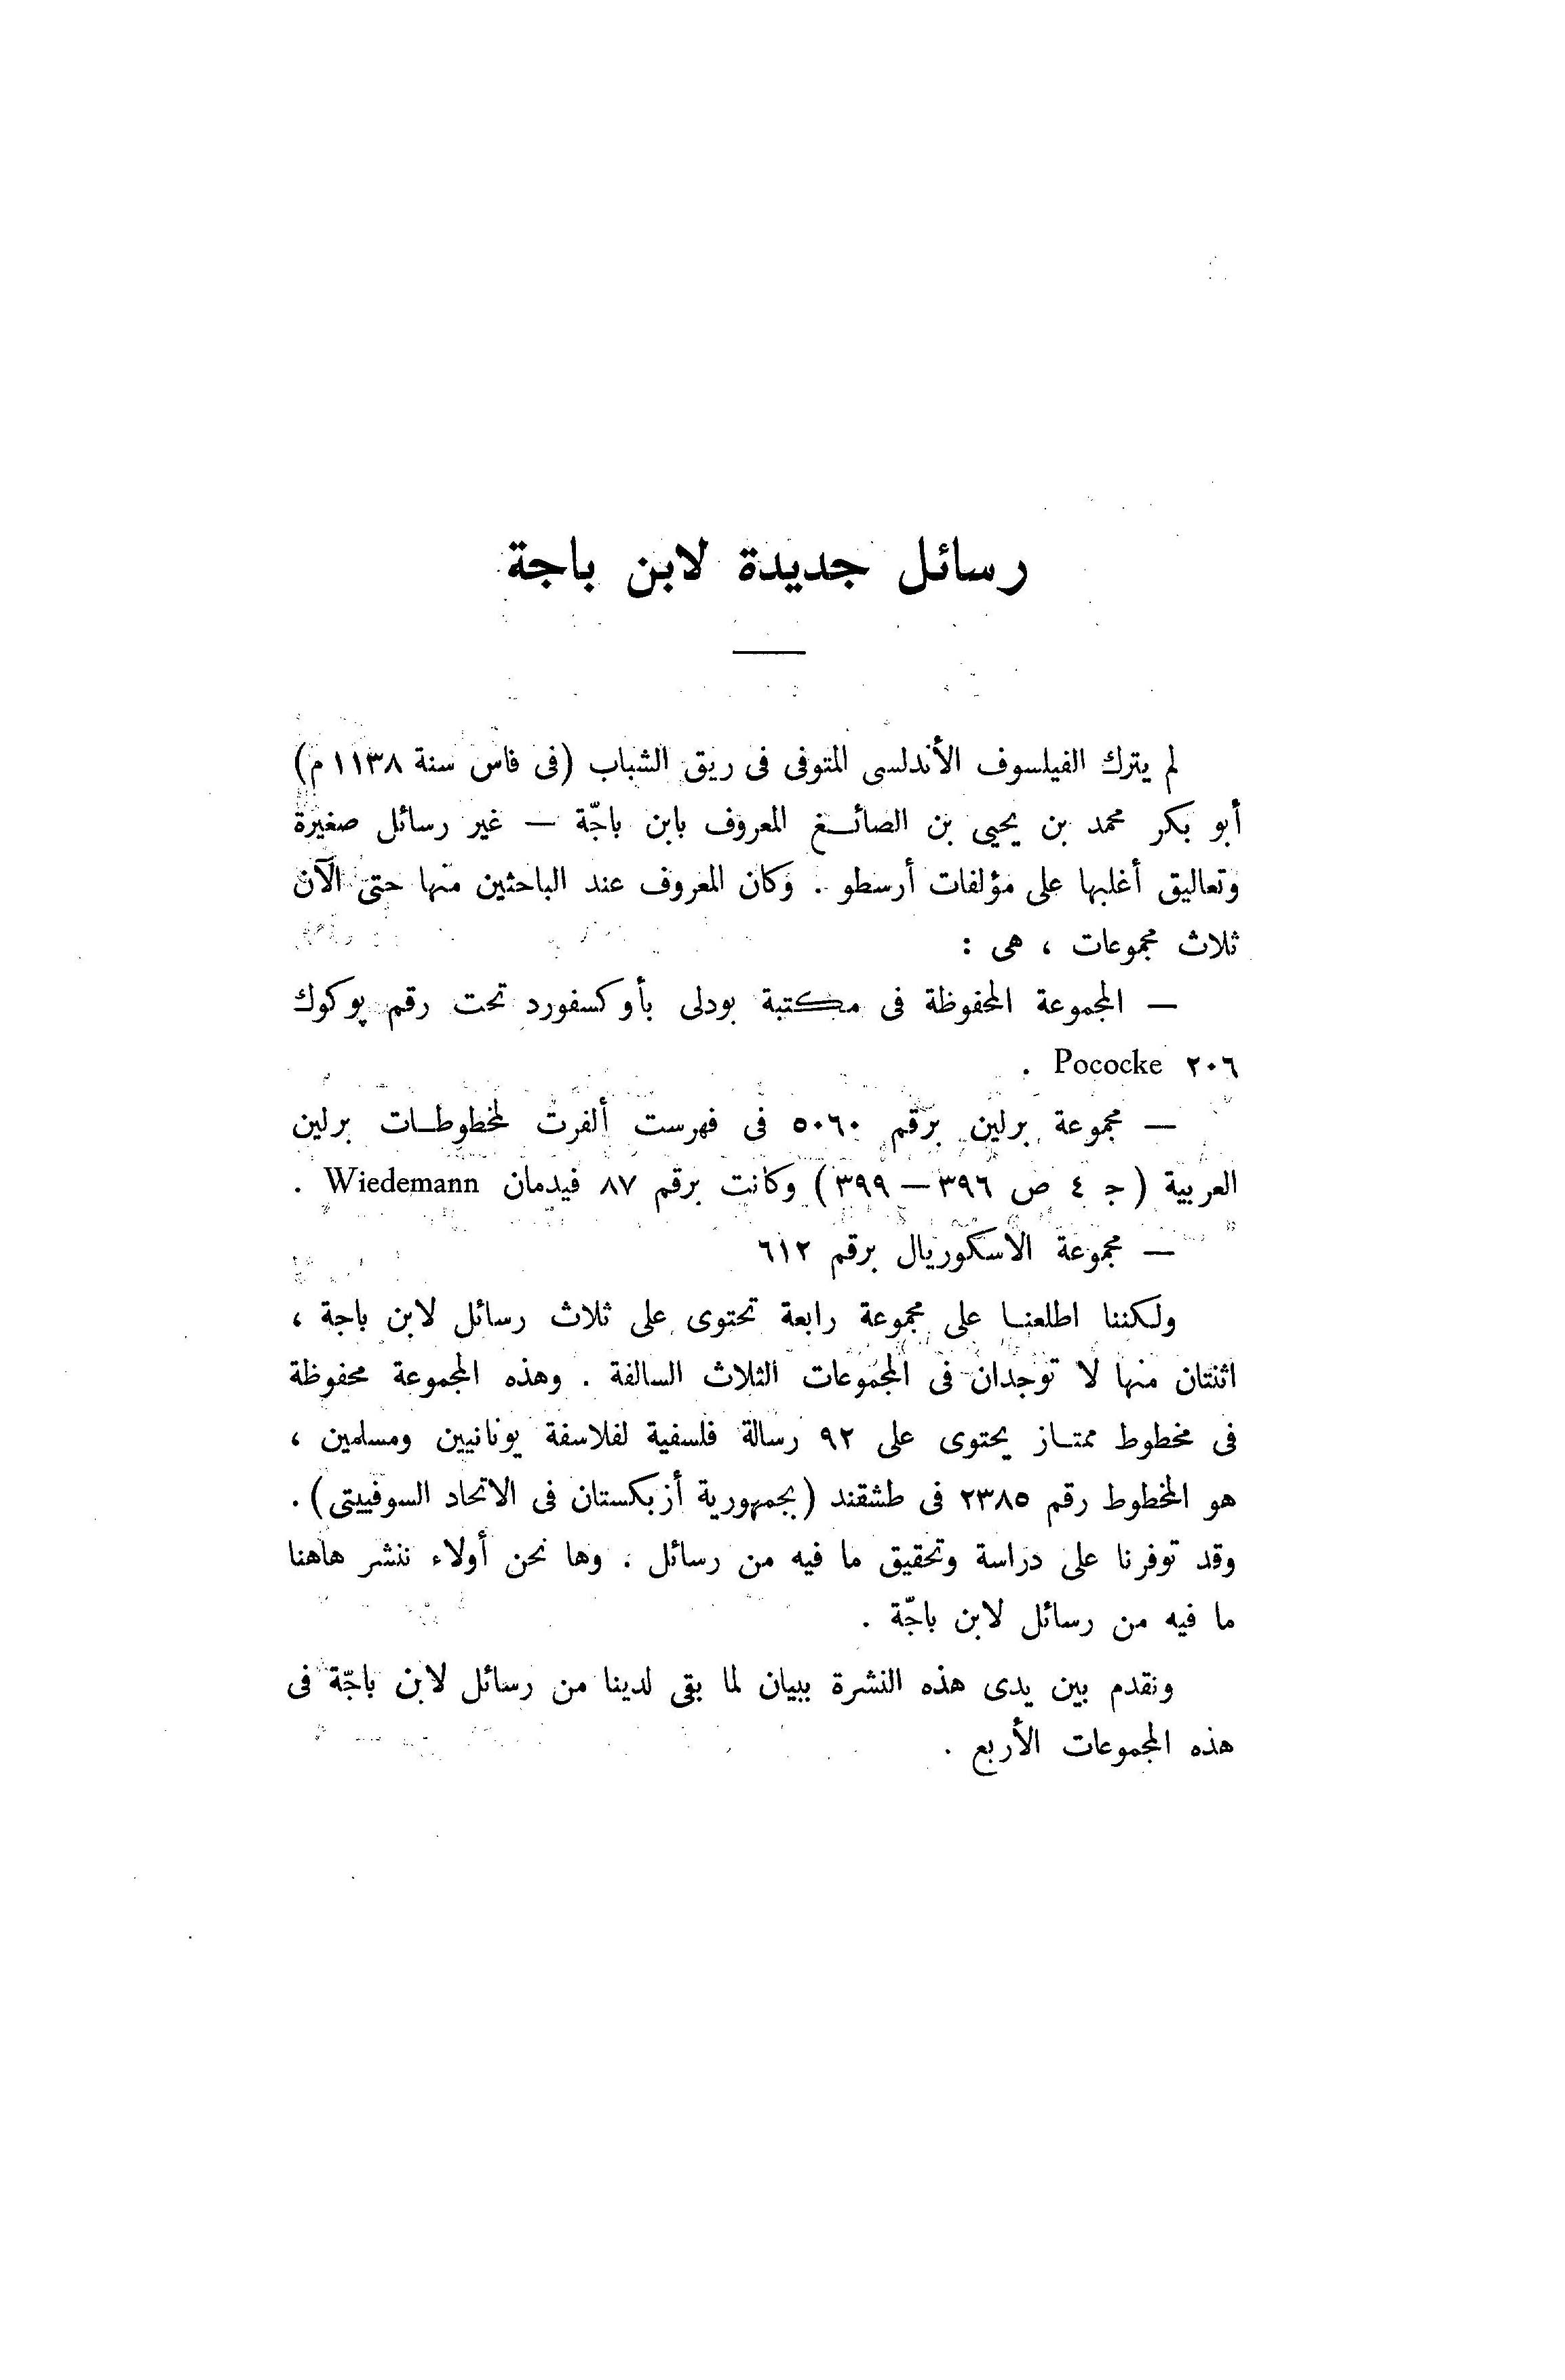 رسائل جديدة لابن باجة
لم يترك الفيلسوف الأندلسى المتوفى فى ريق الشباب (فى فاس سنة ١١٣٨ م)
أبو بكر محمد بن يحيى بن الصائغ المعروف بابن باجّة — غير رسائل صغيرة
وتعاليق أغلبها على مؤلفات أرسطو . وكان المعروف عند الباحثين منها حتى الآن
ثلاث مجموعات ، هى :
— المجموعة المحفوظة فى مكتبة بودلى بأوكسفورد تحت رقم پوكوك
٢٠٦ Pococke .
— مجموعة برلين برقم ٥٠٦٠ فى فهرست ألفرت لمخطوطات برلين
العربية (ج ٤ ص ٣٩٦ — ٣٩٩) وكانت برقم ٨٧ فيدمان Wiedemann .
— مجموعة الاسكوريال برقم ٦١٢
ولكننا اطلعنا على مجموعة رابعة تحتوى على ثلاث رسائل لابن باجة ،
اثنتان منها لا توجدان فى المجموعات الثلاث السالفة . وهذه المجموعة محفوظة
فى مخطوط ممتاز يحتوى على ٩٢ رسالة فلسفية لفلاسفة يونانيين ومسلمين ،
هو المخطوط رقم ٢٣٨٥ فى طشقند (بجمهورية أزبكستان فى الاتحاد السوفييتى) .
وقد توفرنا على دراسة وتحقيق ما فيه من رسائل . وها نحن أولاء ننشر هاهنا
ما فيه من رسائل لابن باجّة .
ونقدم بين يدى هذه النشرة ببيان لما بقى لدينا من رسائل لابن باجّة فى
هذه المجموعات الأربع .